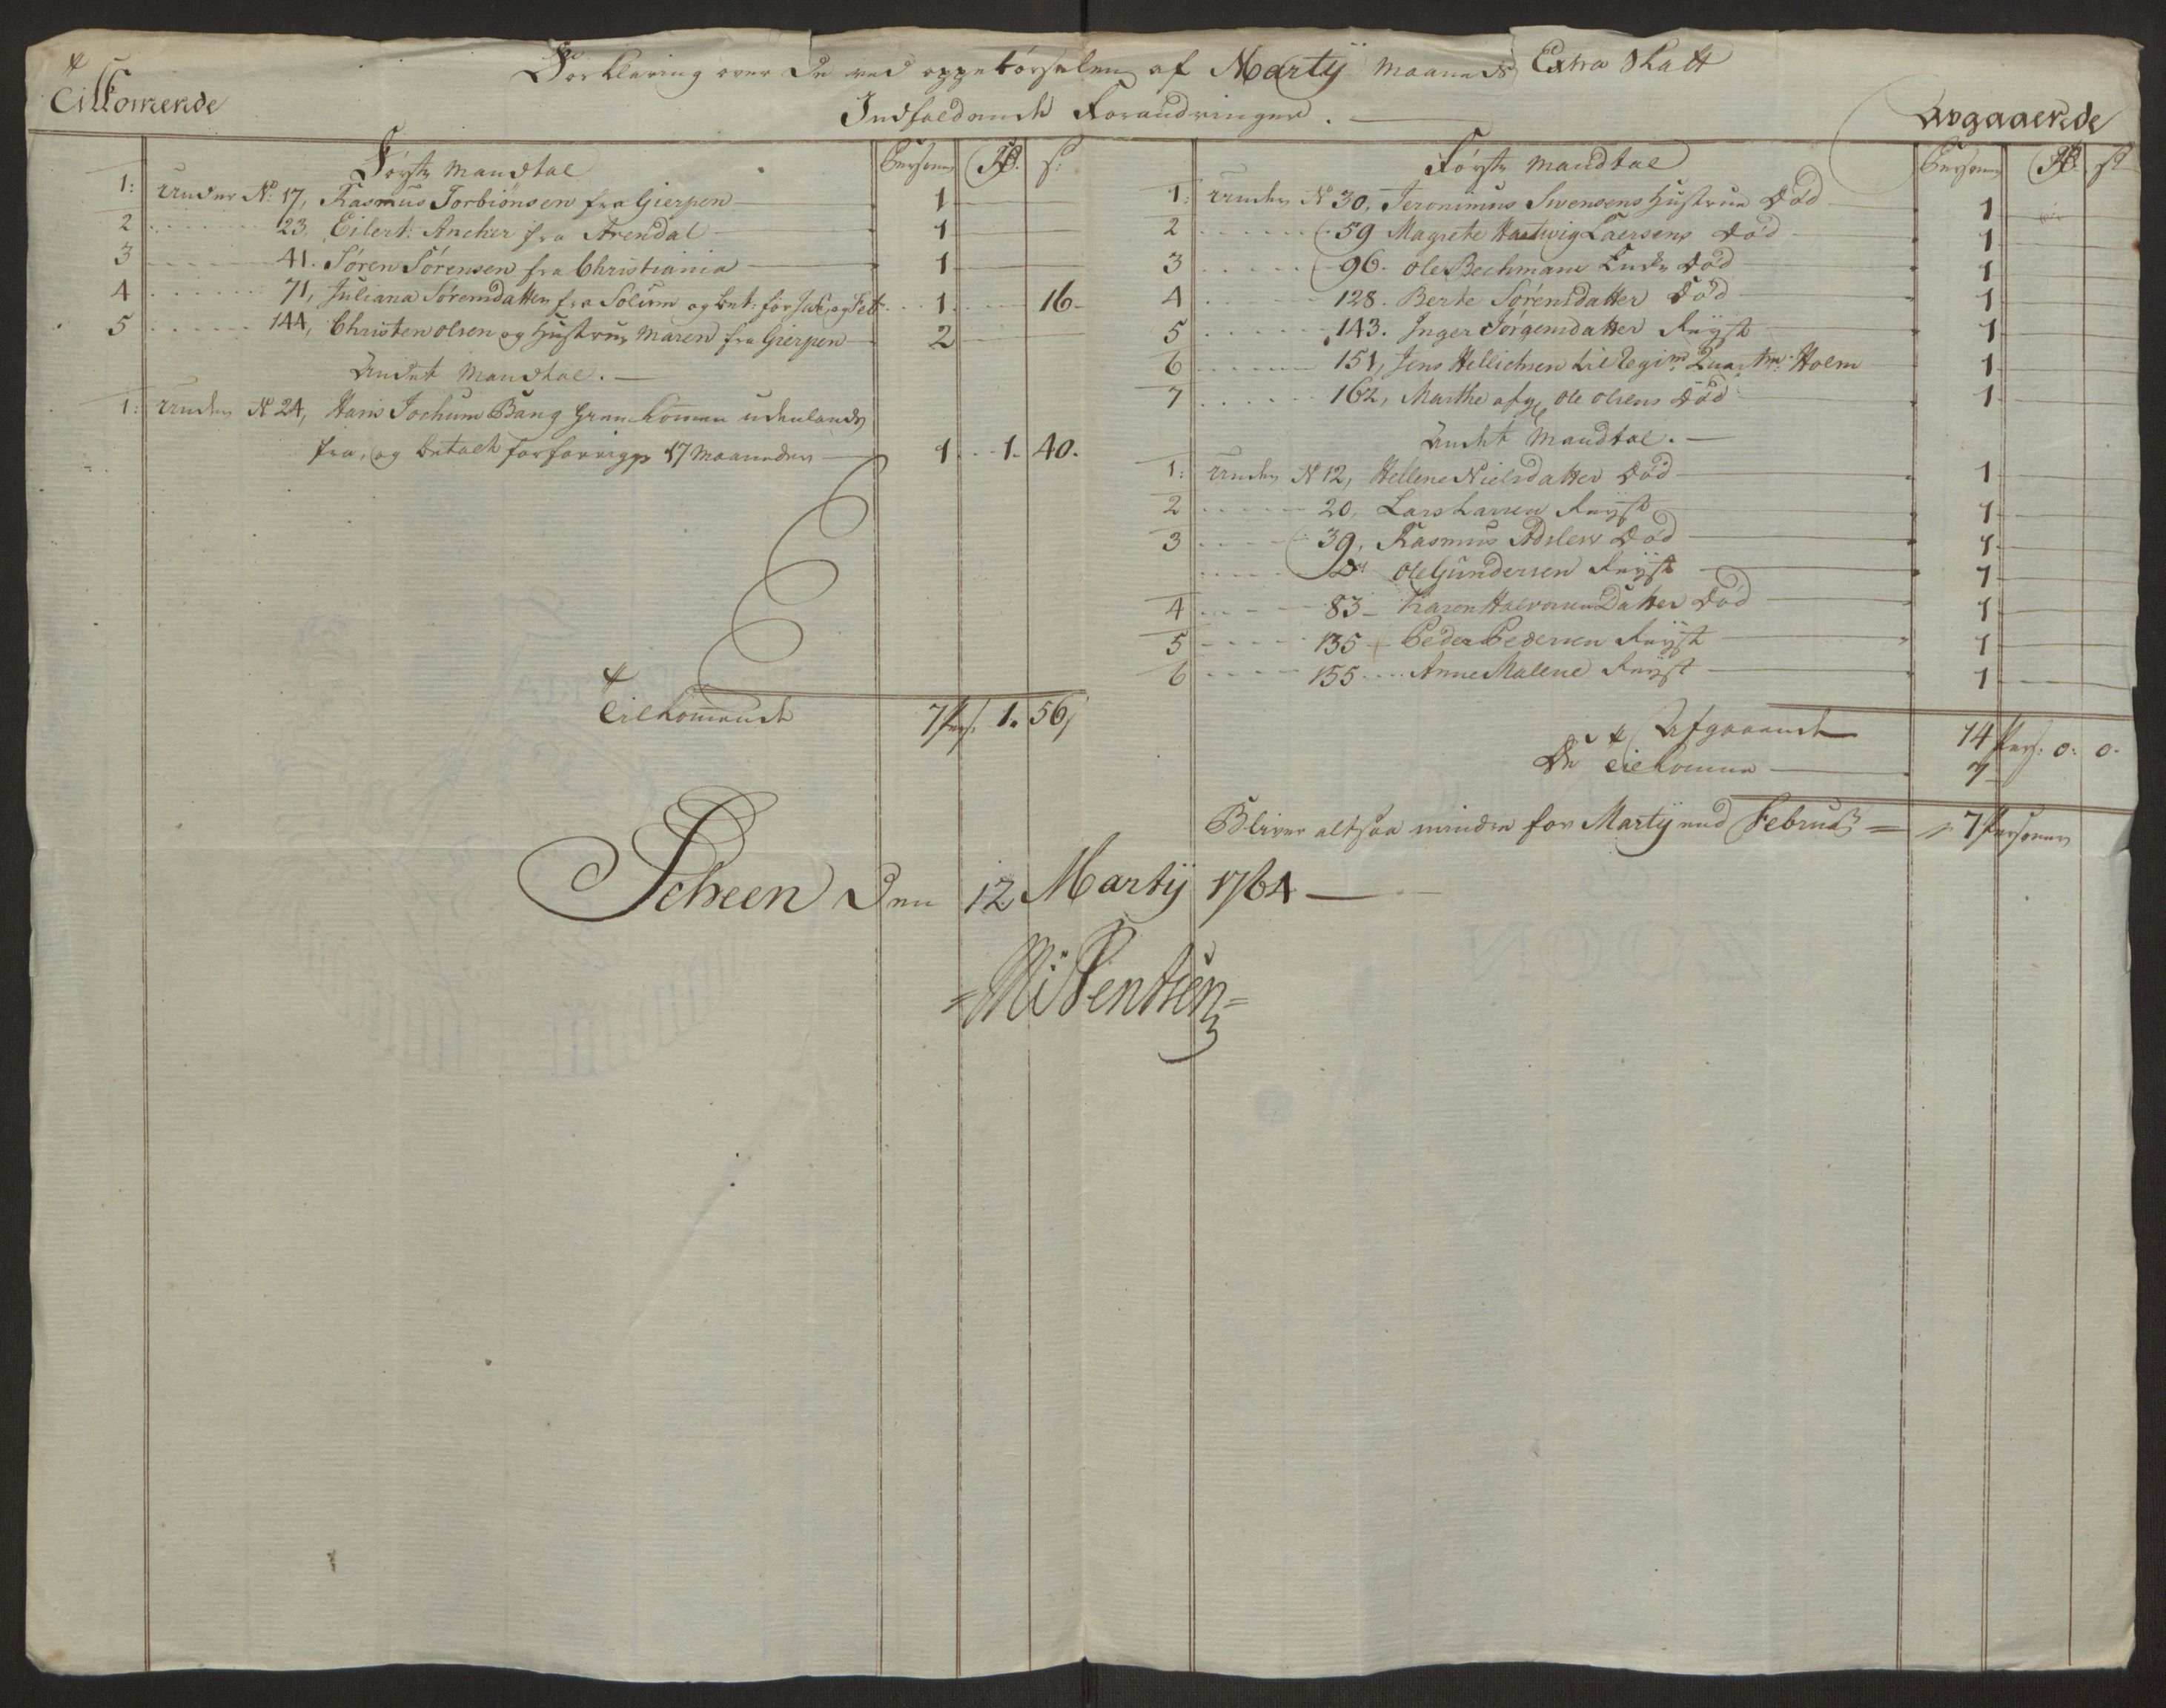 Forklaring over de ved oppebørselen af Martÿ Maaneds Extra Skatt
Indfaldende Forandringer.
Tilkomende
Første Mandtal Persone Rd. s:
1: Under No 17, Rasmus Torbiönsen fra Gierpen 1
2 23. Eilert Ancher fra Arendal 1
3 41. Sören Sörensen fra Christiania 1
4 71, Juliana Sörensdatter fra Solum og bet: for Jan: og Feb 1 16
5 144, Christen olsen og Hustrue Maren fra Gierpen 2
Andet Mandtal.
1: Under No 24, Hans Jochum Bang Kommen udenlands
fra, og betalt for forrige 17 Maaneder 1 1. 40.
Tilkomende 7 Pers. 1. 56
Avgaaende
Første Mandtal Persone Rd. s:
1: Under No 30, Jeronimus Svensens Hustrue død 1
2 59 Magrete Hartwig Laersens død 1
3 96. Ole Bechmans Enke død 1
4 128. Berte Sörensdatter død 1
5 143. Inger Jörgensdatter Reÿst 1
6 151, Jens Hellichsen til Regim: Quartm: Holm 1
7 162, Marthe afg. ole olsens død 1
Andet Mandtal.
1: Under No 12, Hellene Nielsdatter død 1
2 20, Lars Larsen Reÿst 1
3 39, Rasmus Adslew død 1
Do Ole Gundersen Reÿst 1
4 83 Karen Halvorsen Datter død 1
5 135 Peder Pedersen Reÿst 1
6 155 Anne Malene Reÿst 1
Afgaaende 14 Pers: 0: 0.
De Tilkomne 7
Bliver altsaa mindre for Martÿ end Februar = 7 Personer
Scheen den 12 Martÿ 1764